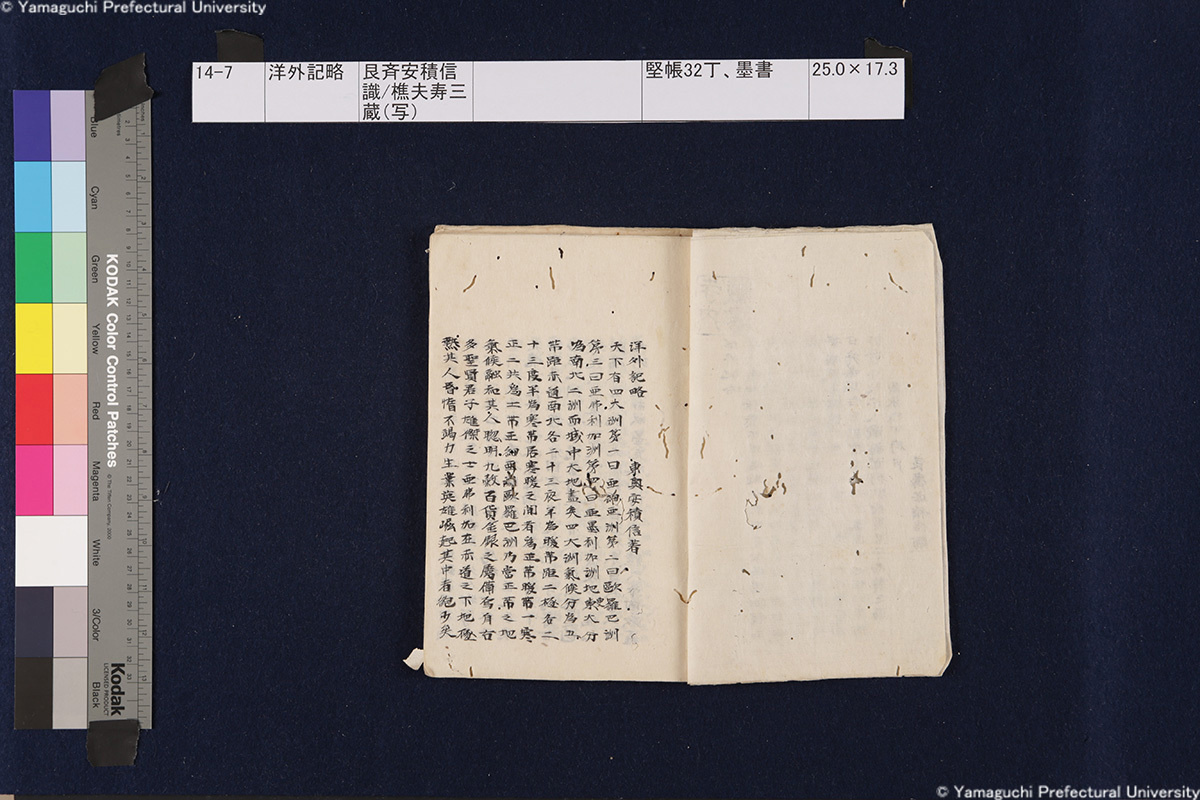 © Yamaguchi Prefectural University
14-7
洋外記略
艮斉安積信
識/樵夫寿三
蔵(写)
竪帳32丁、墨書
25.0×17.3
洋外記略 東奥安積信著
天下有四大洲第一曰亜細亜洲第二曰歐羅巴洲
第三曰亜弗利加洲第四曰亜墨利加洲地大分
為南北二洲而域中大地盡矣四大洲氣候分為五
帯距赤道南北各二十三度半為暖帯距二極各二
十三度半為寒帯居寒暖之間者為正帯暖帯一寒
正二共為五帯亜細亜歐羅巴洲乃當正帯之地
氣候融和其人聡明九穀百貨金銀之属備焉自古
多聖賢君子雄傑之士亜弗利加在赤道之下地極
熱其人昏惰不竭力生業英雄崛起其中者絶少矣
Blue
Cyan
Green
Yellow
Red
Magenta
White
3/Color
Black
KODAK Color Control Patches
© The Tiffen Company, 2000
Kodak
LICENSED PRODUCT
© Yamaguchi Prefectural University